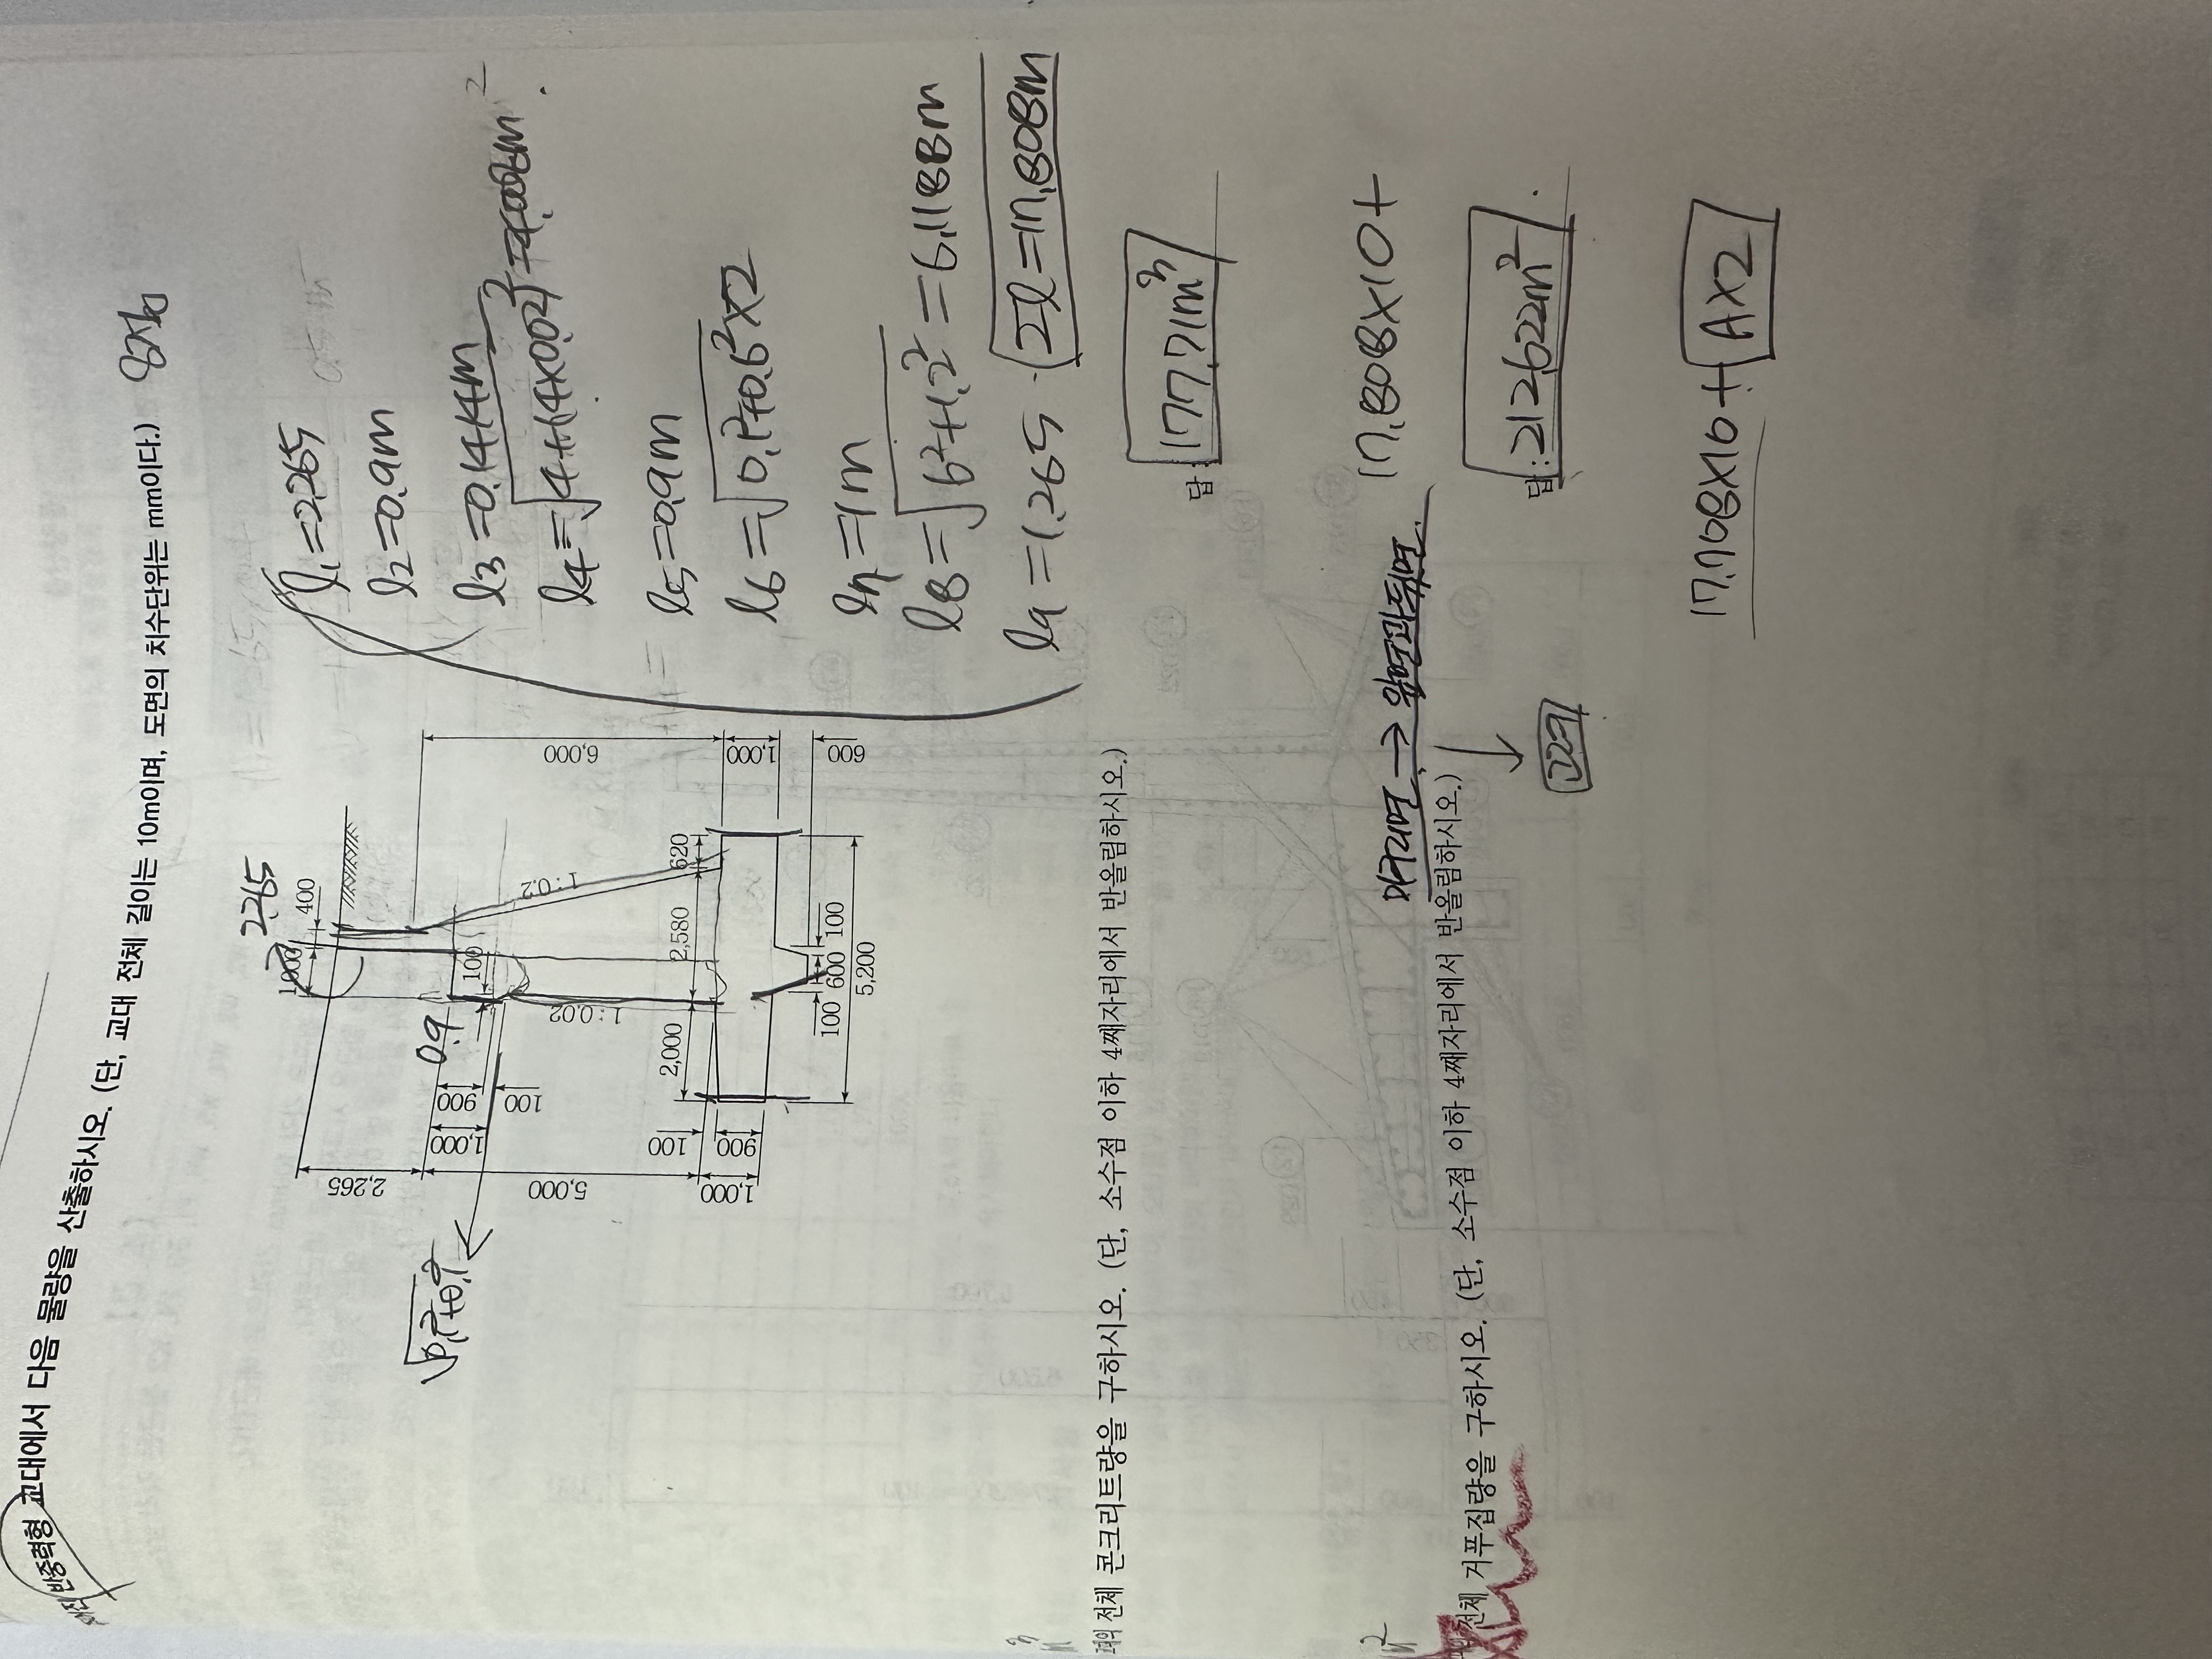 반중력형 교대에서 다음 물량을 산출하시오. (단, 교대 전체 길이는 10m이며, 도면의 치수단위는 mm이다.) 8점
2.265
1,000
400
2,265
5,000
1,000
1,000
900
100
0.9
100
1:0.02
1:0.2
6,000
1,000
600
2,580
620
2,000
100
900
100
600
100
5,200
√0.1²+0.1²
l₁=2.265
l₂=0.9m
l₃=0.141m
l₄=√4²+(4×0.02)²=4.0008m
l₅=0.9m
l₆=√0.1²+0.6²×2
l₇=1m
l₈=√6²+1.2²=6.118m
l₉=1.265
Σl=17.808m
전체 콘크리트량을 구하시오. (단, 소수점 이하 4째자리에서 반올림하시오.)
답: 177.71m³
m³
전체 거푸집량을 구하시오. (단, 소수점 이하 4째자리에서 반올림하시오.)
마구리면→앞면과뒤면
17.808×10+
답: 212.622m²
m²
17.708×10+A×2